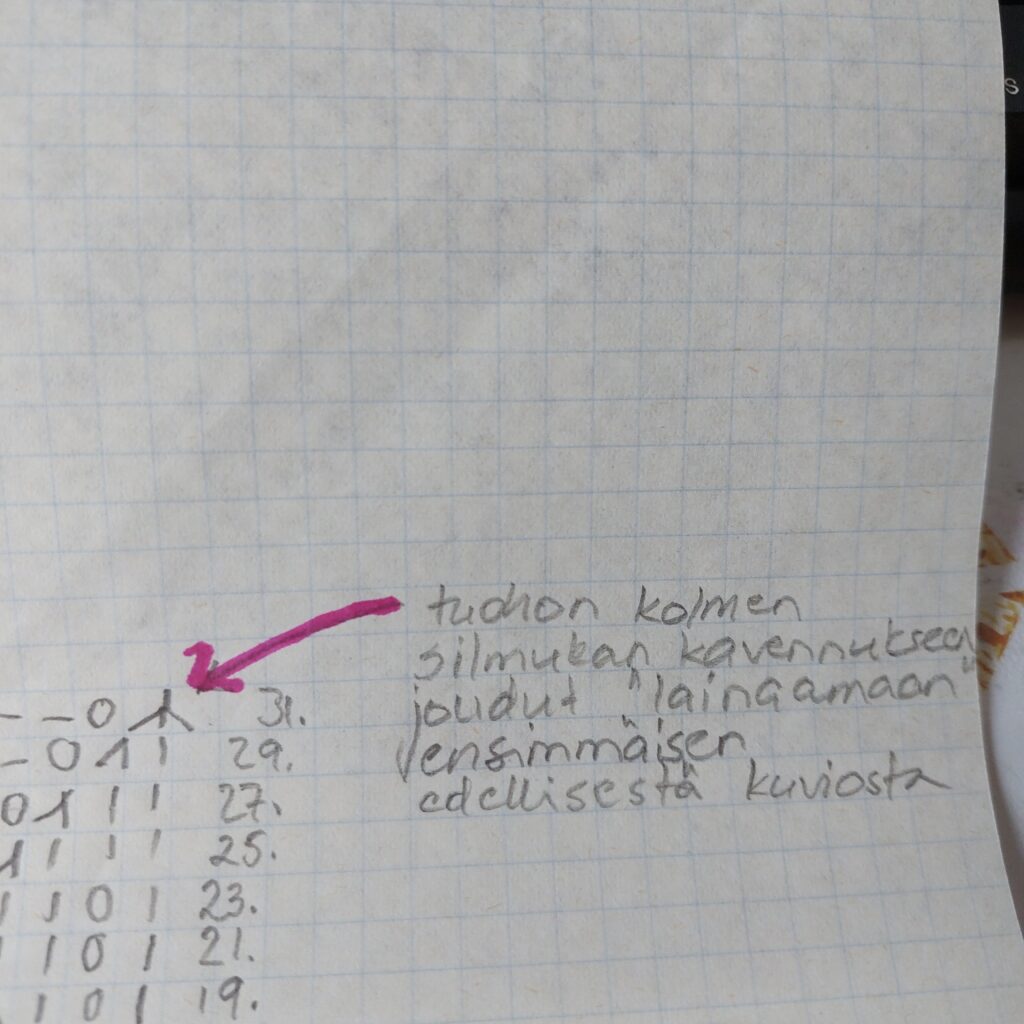 tuohon kolmen
silmukan kavennukseen
joudut "lainaamaan"
ensimmäisen
edellisestä kuviosta
– – O 31.
– O 1 1 29.
O 1 1 1 27.
1 1 1 1 25.
1 1 O 1 23.
1 1 O 1 21.
1 O 1 19.
S